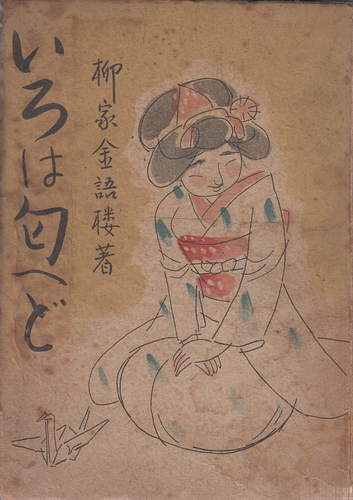 いろは匂へど
柳家金語楼著